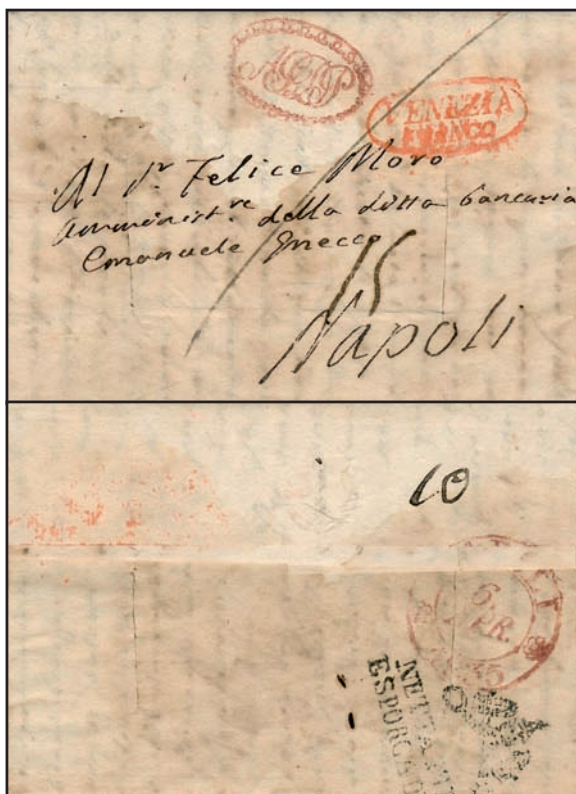 VENEZIA
FRANCO
Al Sr. Felice Moro
Amministre. della ditta bancaria
Emanuele Gnecco
15
Napoli
10
6
APR.
NETTA
ESPORCA